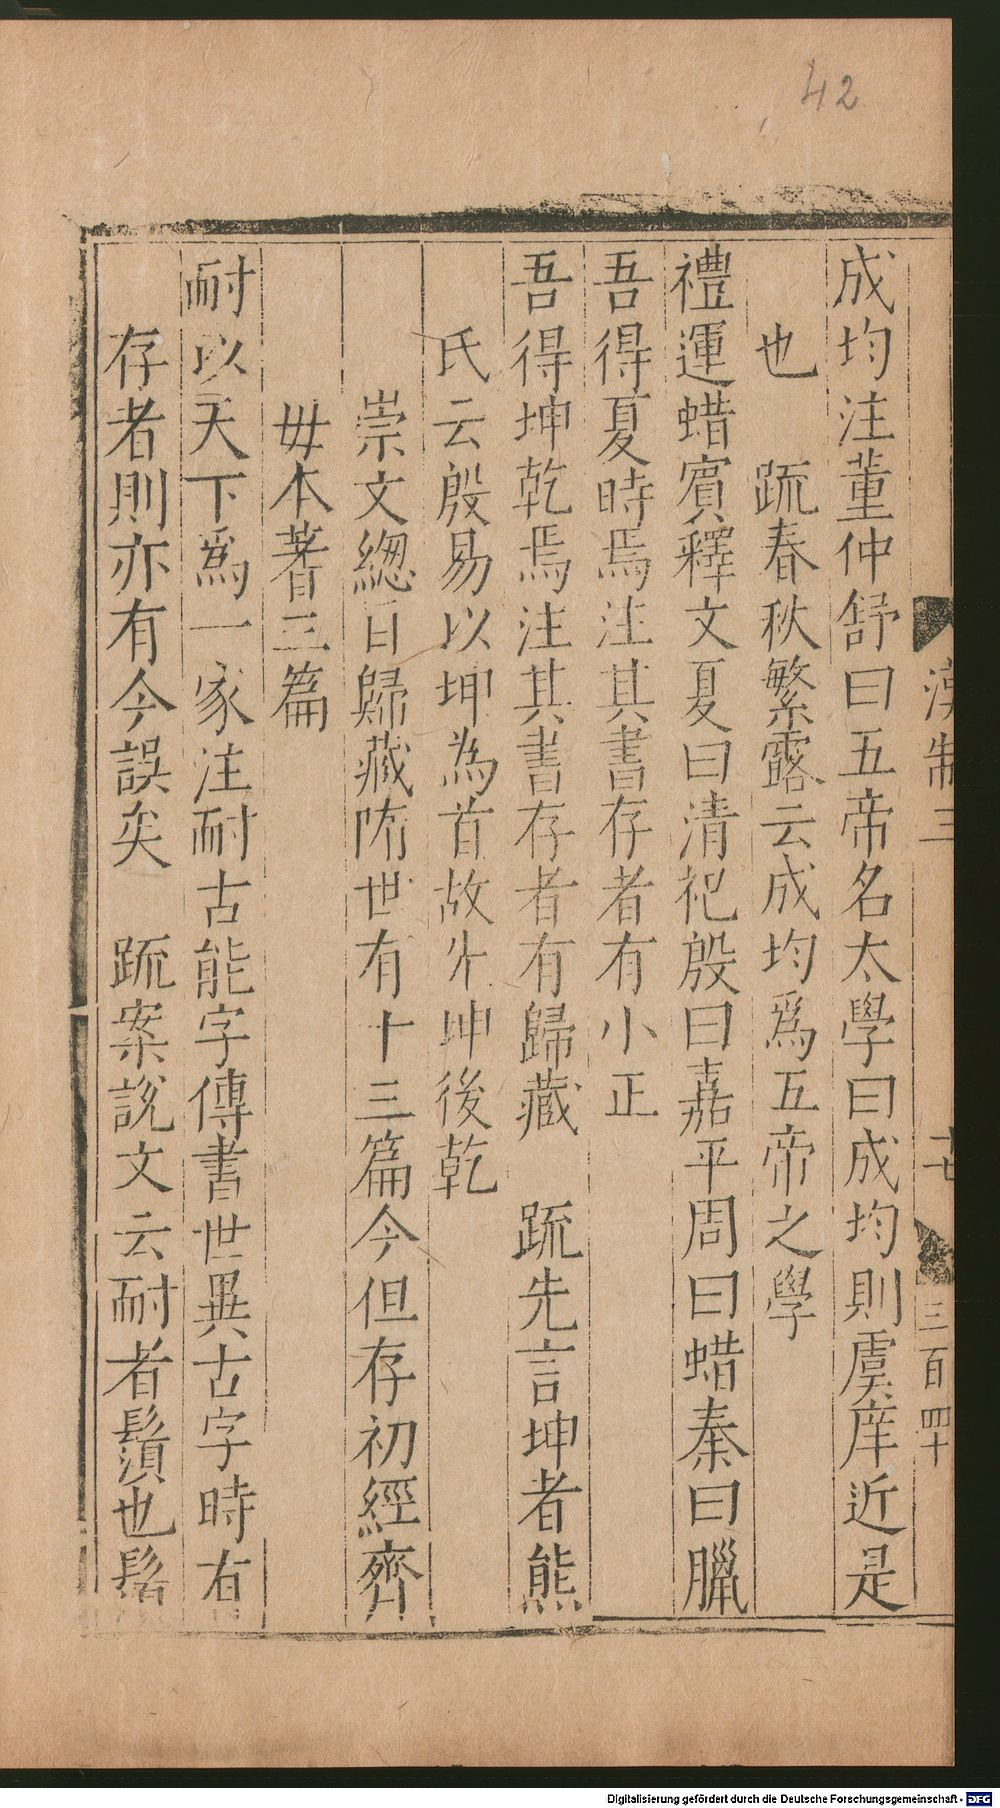 42
漢制三
十七
三百四十
成均注董仲舒曰五帝名太學曰成均則虞庠近是
也　疏春秋繁露云成均爲五帝之學
禮運蜡賓釋文夏曰清祀殷曰嘉平周曰蜡秦曰臘
吾得夏時焉注其書存者有小正
吾得坤乾焉注其書存者有歸藏　疏先言坤者熊
氏云殷易以坤為首故先坤後乾
崇文緫目歸藏隋世有十三篇今但存初經齊
毋本蓍三篇
耐以天下爲一家注耐古能字傳書世異古字時有
存者則亦有今誤矣　疏案說文云耐者鬚也鬚
Digitalisierung gefördert durch die Deutsche Forschungsgemeinschaft - DFG